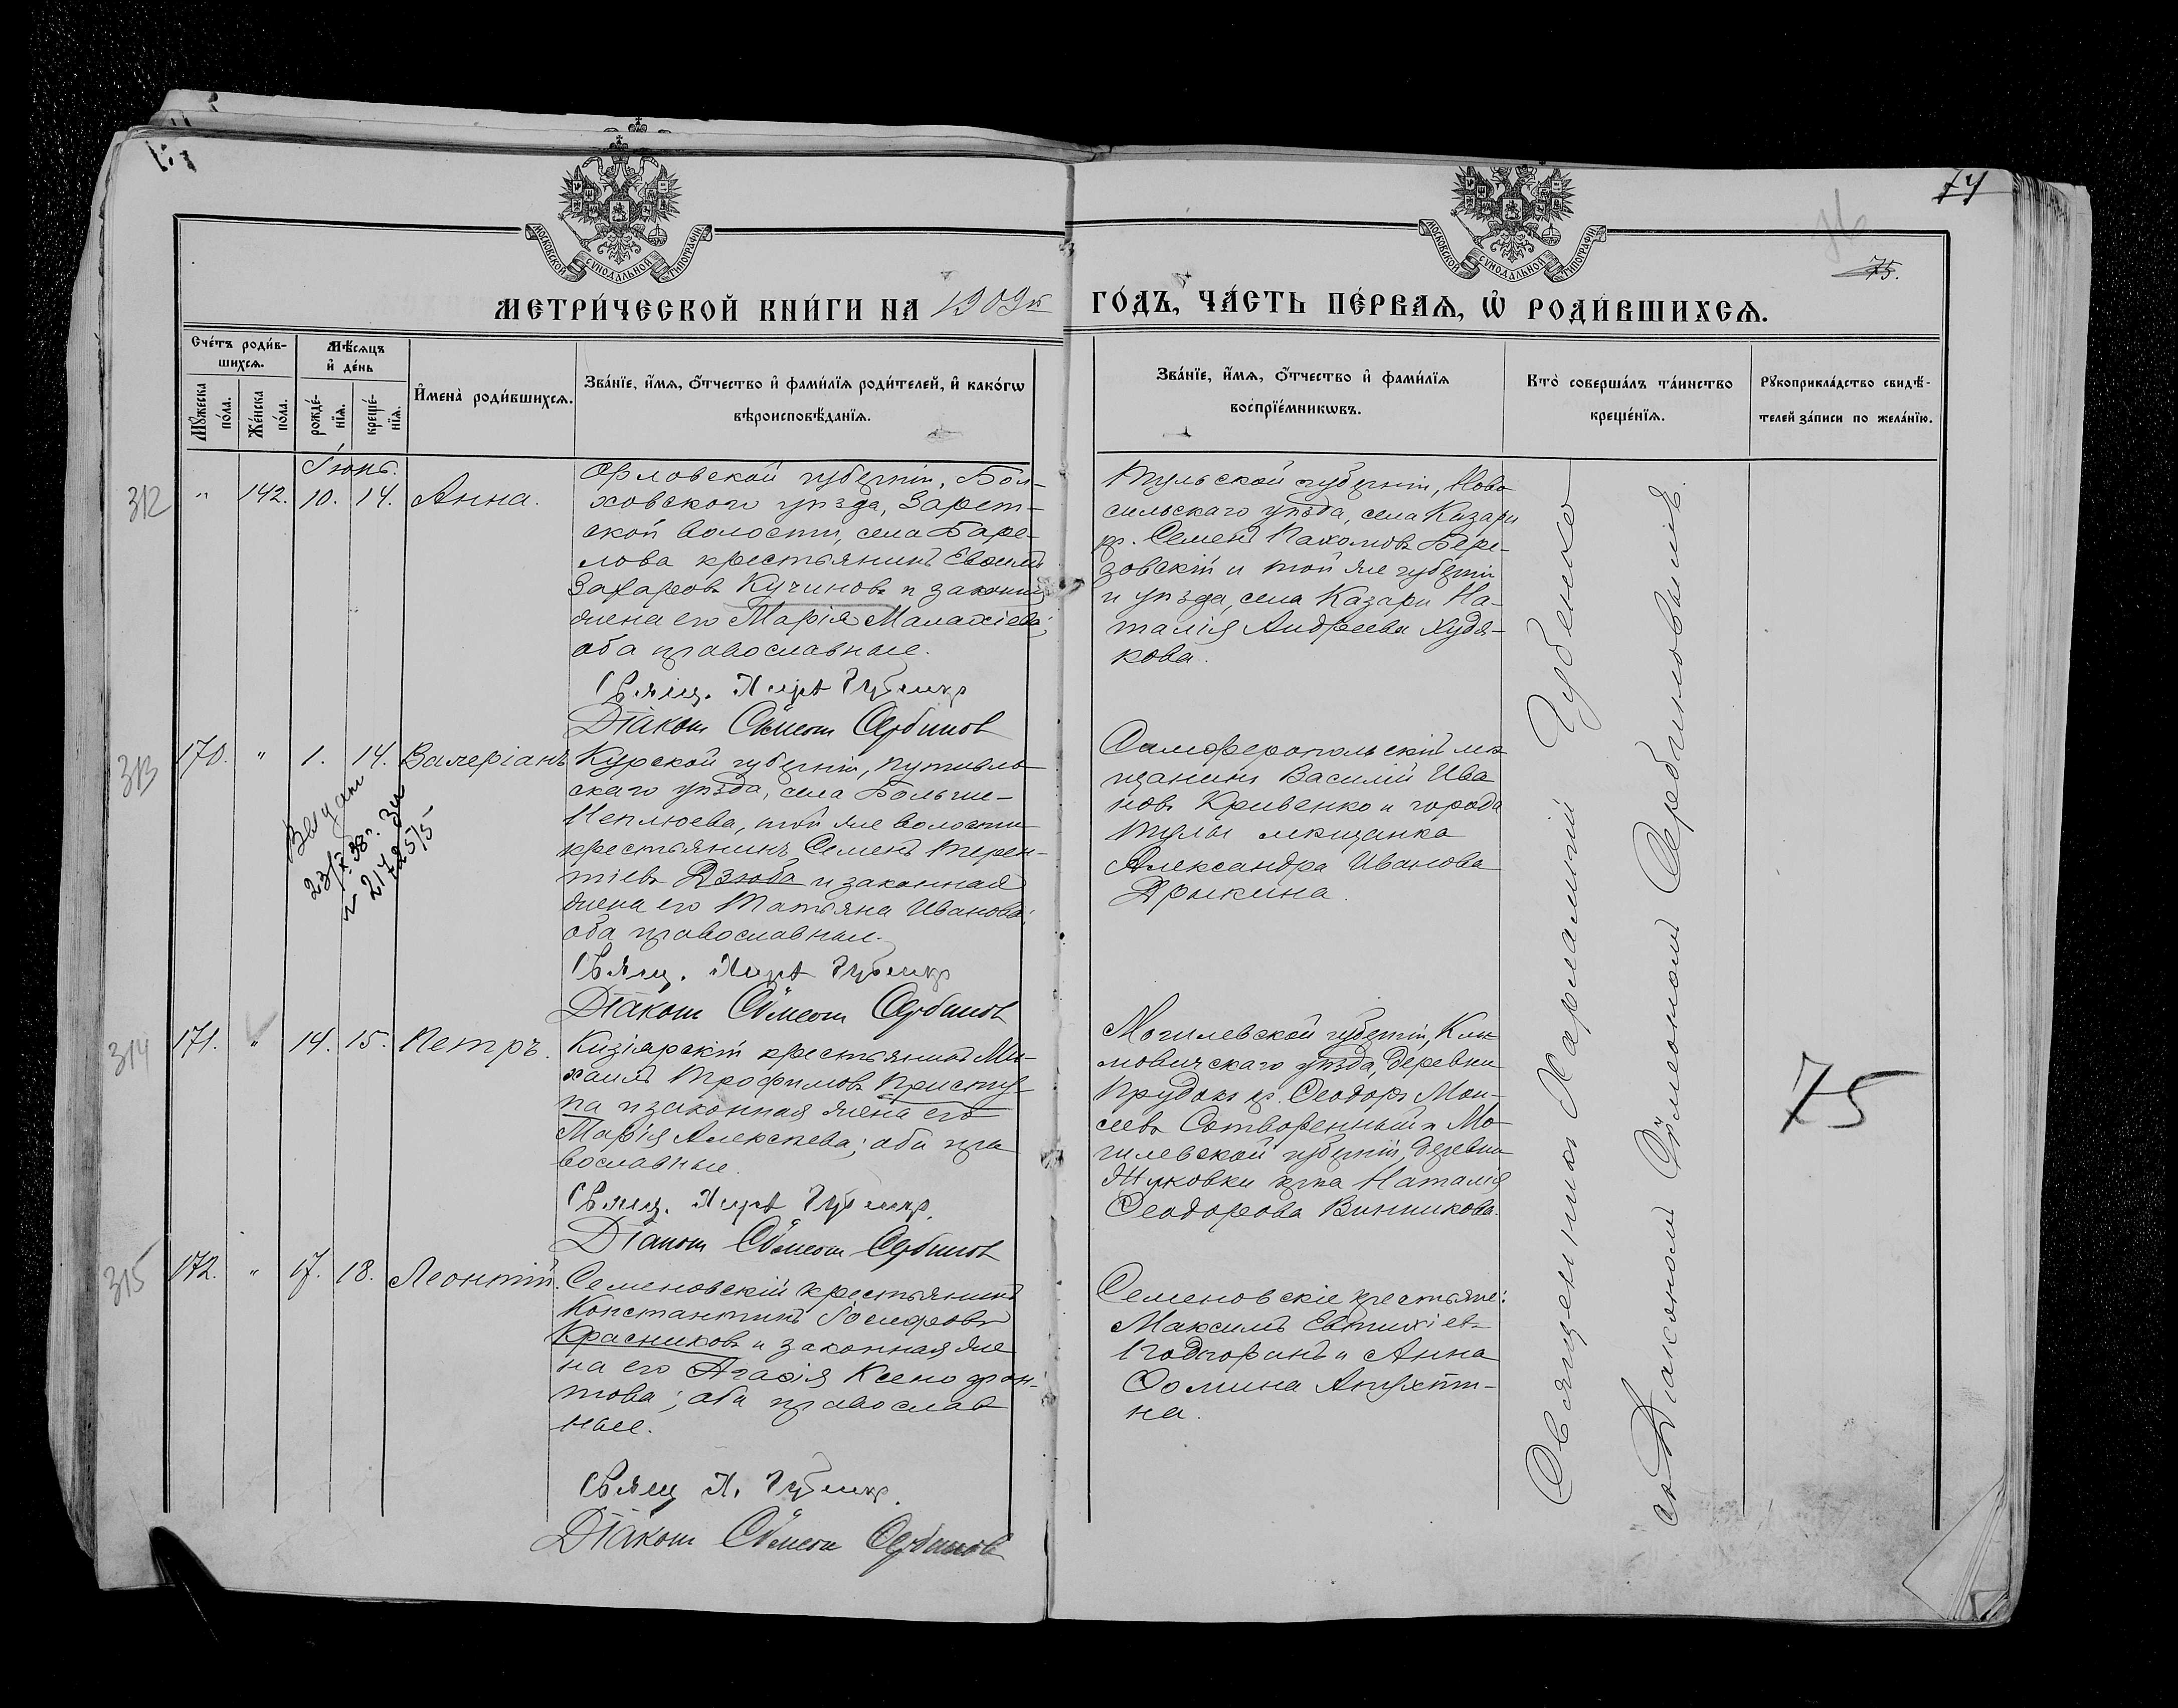 74
75.
МОСКОВСКОЙ СУНОДАЛЬНОЙ ТИПОГРАФІИ
МОСКОВСКОЙ СУНОДАЛЬНОЙ ТИПОГРАФІИ
МЕТРИ́ЧЕСКОЙ КНИ́ГИ НА 1909й
ГО́ДЪ, ЧА́СТЬ ПЕ́РВАѦ, Ѽ РОДИ́ВШИХСѦ.
Сче́тъ роди́в-
шихсѧ.
Мꙋ́жеска по́ла.
Же́нска по́ла.
Мѣ́сѧцъ
и҆ де́нь
рожде́-
нїѧ.
креще́-
нїѧ.
И҆мена̀ роди́вшихсѧ.
Зва́нїе, и҆́мѧ, ѻ҆́тчество и҆ фами́лїѧ роди́телей, и҆ како́гѡ
вѣроисповѣ́данїѧ.
Зва́нїе, и҆́мѧ, ѻ҆́тчество и҆ фами́лїѧ
воспрїе́мникѡвъ.
Кто̀ соверша́лъ та́инство
креще́нїѧ.
Рꙋкоприкла́дство свидѣ́-
телей за́писи по жела́нїю.
Іюнь.
312 " 142. 10. 14. Анна.
Орловской губерніи, Бол-
ховского уѣзда, Зарет-
ской волости, села Баре-
лова крестьянинъ Евѳимъ
Захаровъ Кучиновъ и законная
жена его Марія Малахіева;
оба православные.
Свящ. Харл Губенко
Діаконъ Сѵмеонъ Сербиновъ
Тульской губерніи, Ново
сильскаго уѣзда, села Казари
кр. Семенъ Пахомовъ Бере-
зовскій и той же губерніи
и уѣзда, села Казари На-
талія Андреева Худя-
кова.
313 170. " 1. 14. Валеріанъ
Курской губерніи, Путивль
скаго уѣзда, села Больше-
Неплюева, той же волости
крестьянинъ Семенъ Терен-
тіевъ Дзюба и законная
жена его Татьяна Иванова;
оба православные.
Свящ. Харл Губенко
Діаконъ Сѵмеонъ Сербиновъ
Выдан
23/X 38г.
Симферопольскій мѣ
щанинъ Василій Ива
новъ Кривенко и города
Тулы мѣщанка
Александра Иванова
Дрыкина.
314 171. " 14. 15. Петръ.
Кизіярскій крестьянинъ Ми-
хаилъ Трофимовъ Присту
па и законная жена его
Марія Алексѣева; оба пра
вославные.
Свящ. Харл Губенко.
Діаконъ Сѵмеонъ Сербиновъ
Могилевской губерніи, Кли
мовичскаго уѣзда, деревни
Прудокъ кр. Ѳеодоръ Мои-
сеевъ Сотворенный и Мо-
гилевской губерніи, деревни
Жуковки кр-ка Наталія
Ѳеодорова Винникова.
315 172. " 17. 18. Леонтій.
Семеновскій крестьянинъ
Константинъ Іосифовъ
Красниковъ и законная же
на его Агафія Ксенофон-
това; оба православ
ные.
Свящ Х. Губенко.
Діаконъ Сѵмеонъ Сербиновъ
Семеновскіе крестьяне:
Максимъ Евтихіевъ
и Анна
Ѳомина Апухти-
на.
Священникъ Харлампій Губенко
съ Діакономъ Сѵмеономъ Сербиновымъ.
75